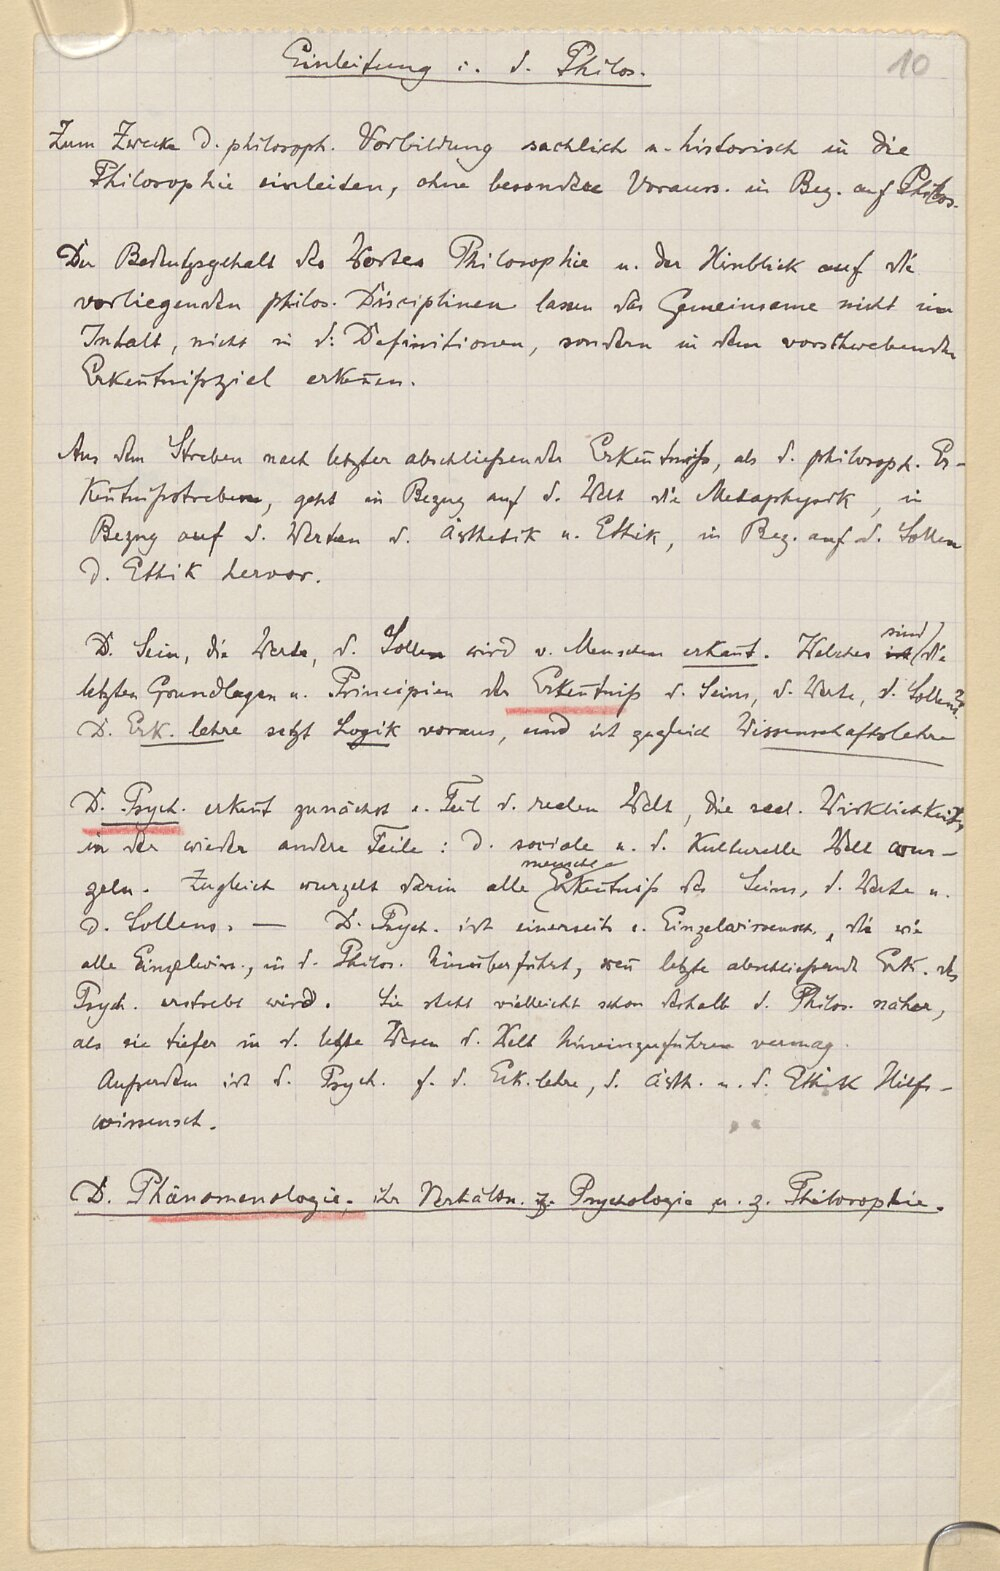 Einleitung i. d. Philos.
10
Zum Zwecke d. philosoph. Vorbildung sachlich u. historisch in die
Philosophie einleiten, ohne besondere Vorauss. in Bez. auf Philos.
Der Bedeutgsgehalt des Wortes Philosophie u. der Hinblick auf die
vorliegenden philos. Disciplinen lassen das Gemeinsame nicht im
Inhalt, nicht in d. Definitionen, sondern in dem vorschwebenden
Erkeñtnißziel erkeñen.
Aus dem Streben nach letzter abschließender Erkeñtniß, als d. philosoph. Er-
keñtnißstreben, geht in Bezug auf d. Welt die Metaphysik, in
Bezug auf d. Werten d. Ästhetik u. Ethik, in Bez. auf d. Sollen
d. Ethik hervor.
sind
D. Sein, die Werte, d. Sollen wird v. Menschen erkañt. Welches ist die
letzten Grundlagen u. Principien der Erkeñtniß d. Seins, d. Werte, d. Sollens?
D. Erk. lehre setzt Logik voraus, und ist zugleich Wissenschaftslehre
D. Psych. erkeñt zunächst e. Teil d. realen Welt, die seel. Wirklichkeit,
in der wieder andere Teile: d. sociale u. d. kulturelle Welt wur-
menschl.
zeln. Zugleich wurzelt darin alle Erkeñtniß des Seins, d. Werte u.
d. Sollens. — D. Psych. ist einerseits e. Einzelwissensch., die wie
alle Einzelwiss., in d. Philos. hinüberführt, weñ letzte abschließende Erk. des
Psych. erstrebt wird. Sie steht vielleicht schon deshalb d. Philos. näher,
als sie tiefer in d. letzte Wesen d. Welt hineinzuführen vermag.
Außerdem ist d. Psych. f. d. Erk.lehre, d. Ästh. u. d. Ethik Hilfs-
wissensch.
D. Phänomenologie, ihr Verhältn. z. Psychologie u. z. Philosophie.